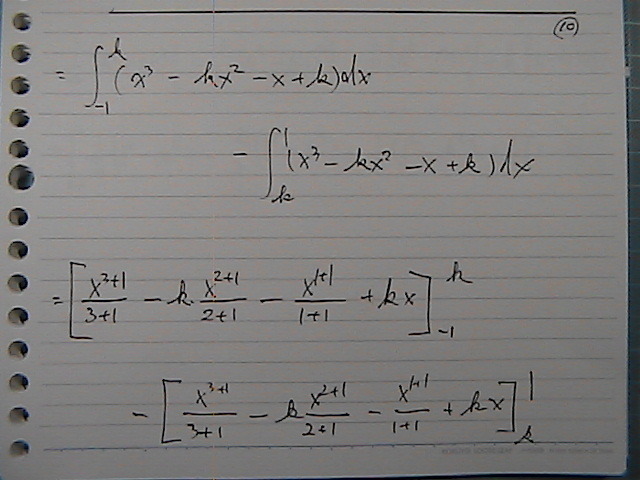 (10)
= ∫_{-1}^{k} (x³ - kx² - x + k)dx
- ∫_{k}^{1} (x³ - kx² - x + k)dx
= [ x^{3+1}/3+1 - k x^{2+1}/2+1 - x^{1+1}/1+1 + kx ]_{-1}^{k}
- [ x^{3+1}/3+1 - k x^{2+1}/2+1 - x^{1+1}/1+1 + kx ]_{k}^{1}